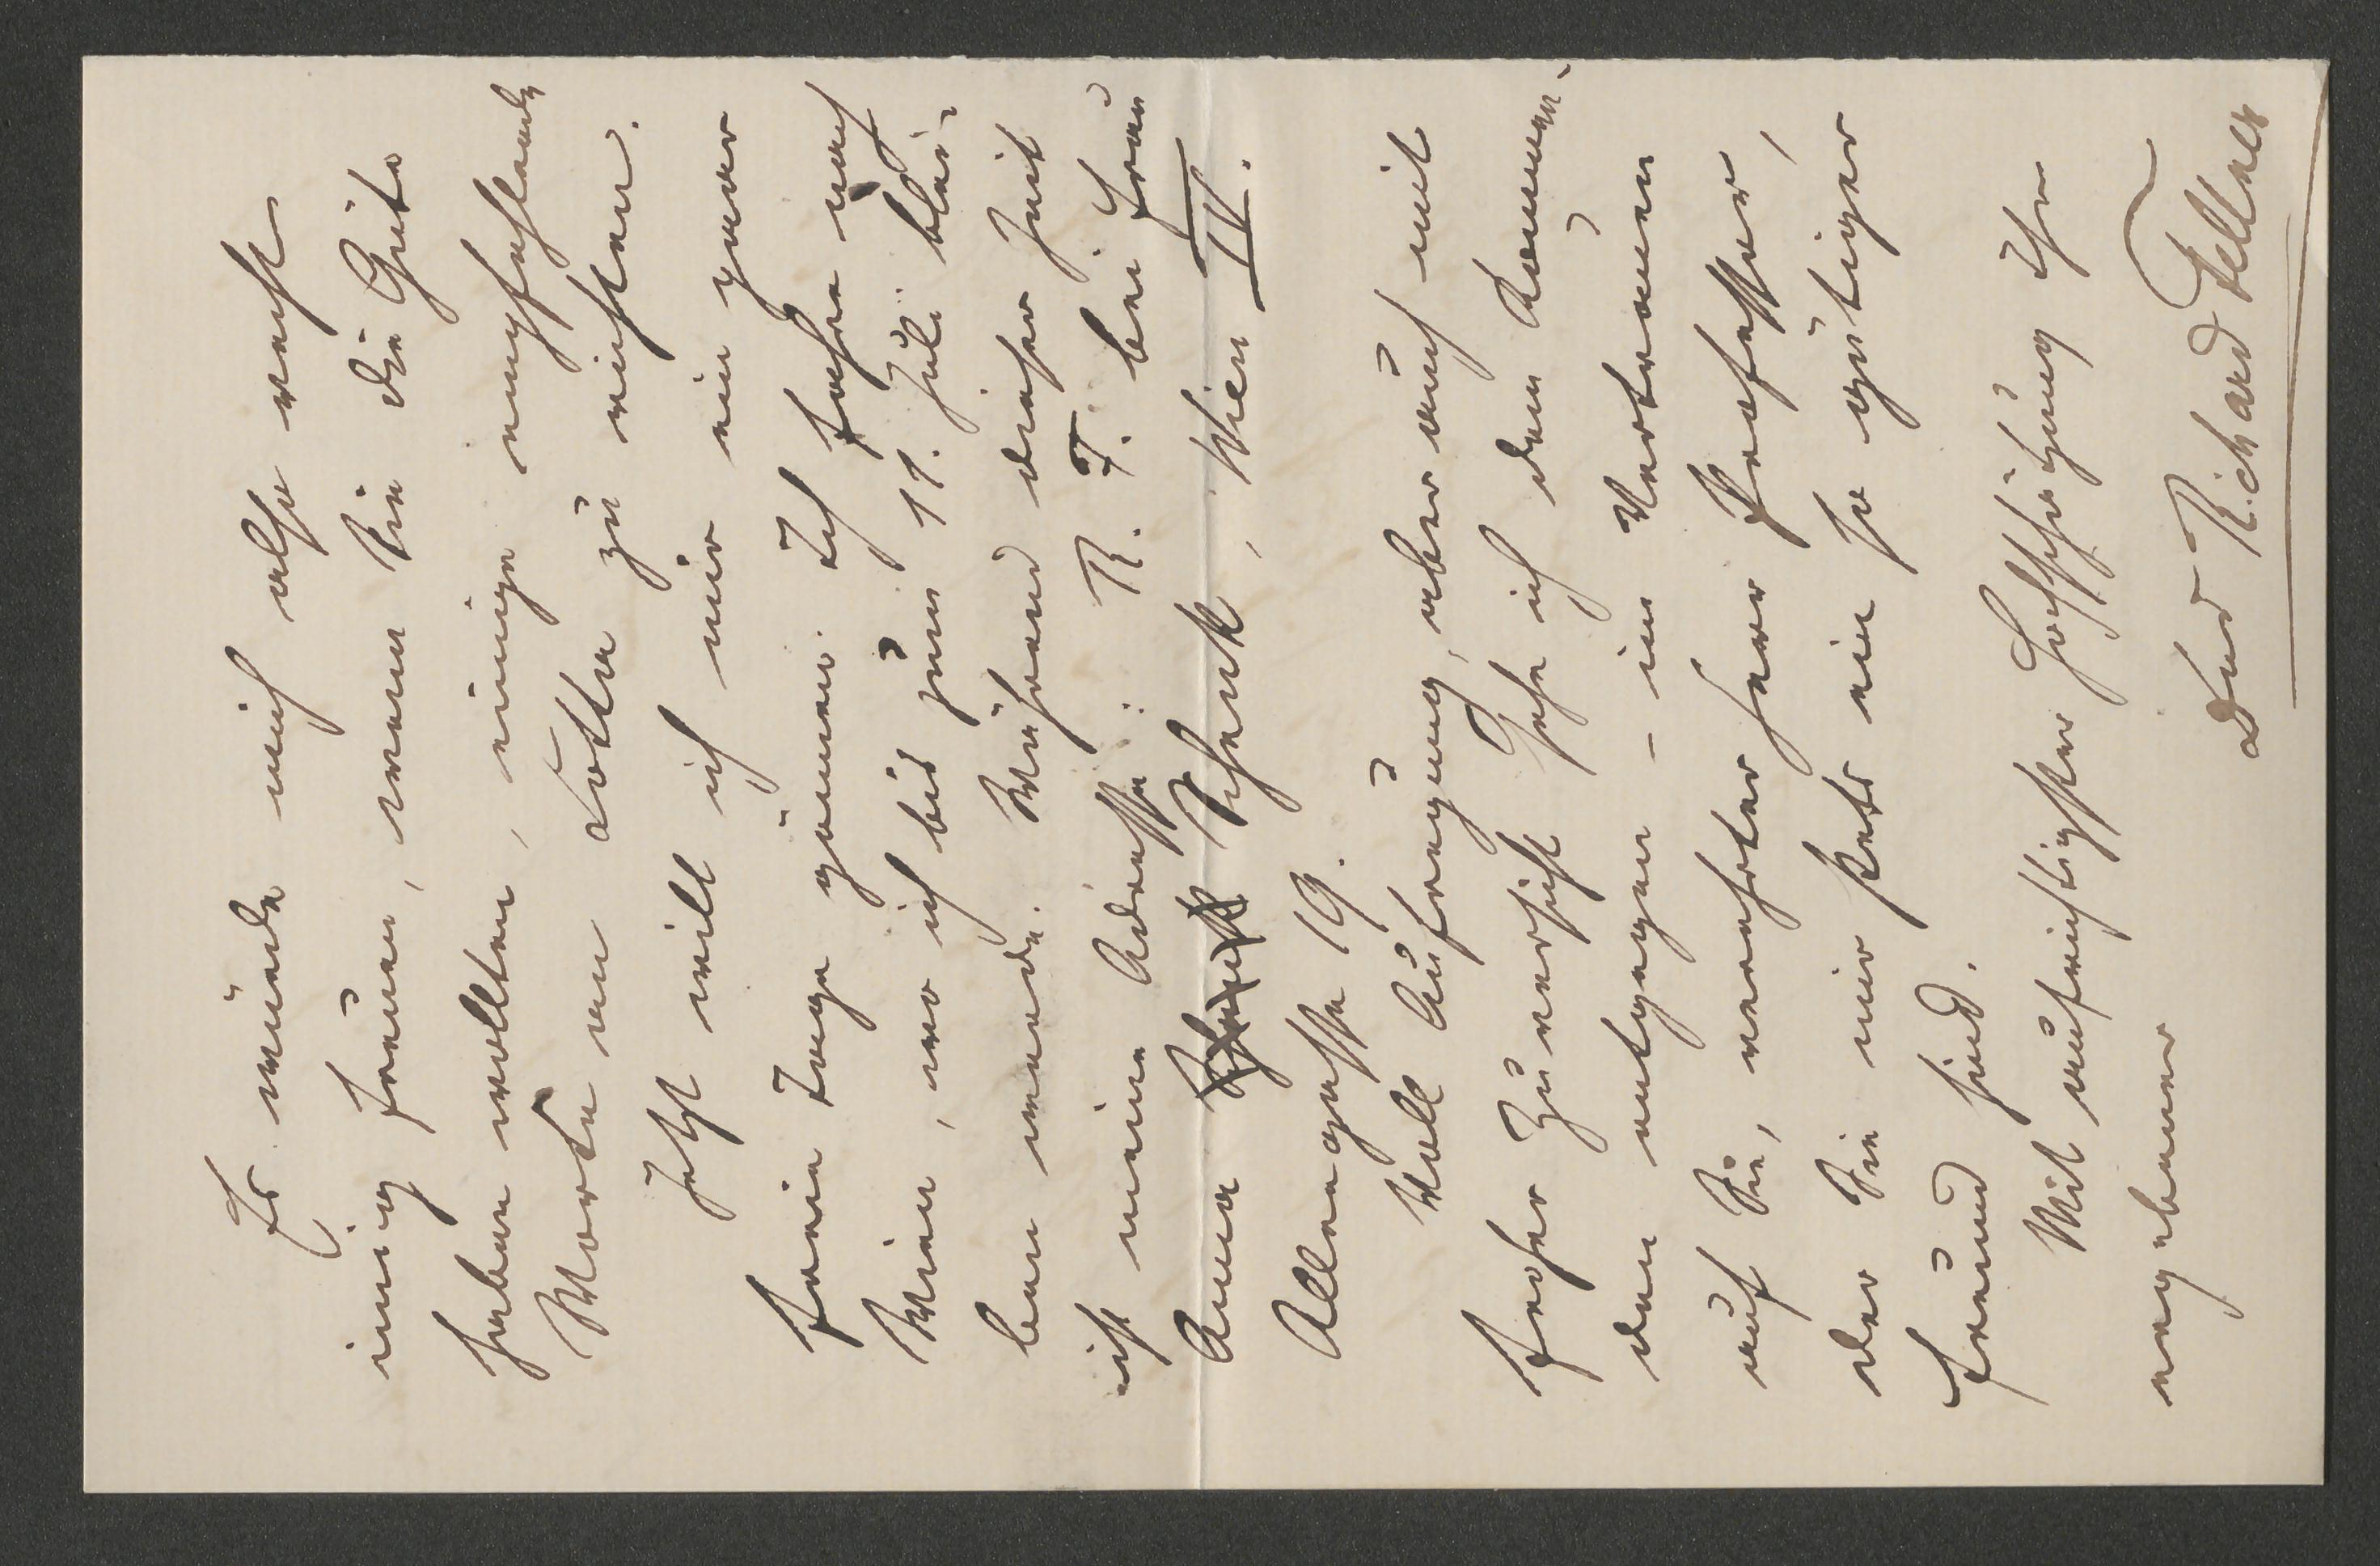 Es würde mich also recht
innig freuen, wenn Sie die Güte
haben wollten, einige empfehlende
Worte an Lotte zu richten.
Jetzt will ich mir ein paar
freie Tage gönnen. Ich fahre nach
Wien, wo ich bis zum 11. Juli blei-
ben werde. Während dieser Zeit
ist meine Adresse: R. F. bei Frau
Anna Schenk, Wien IV.
Alleegasse 19.
Voll Aufregung, aber auch mit
froher Zuversicht sehe ich dem Kommen-
den entgegen – im Vertrauen
auf Sie, verehrter Herr Professor,
der Sie mir stets ein so gütiger
Freund sind.
Mit aufrichtigster Hochschätzung Ihr
ergebener
Richard Fellner